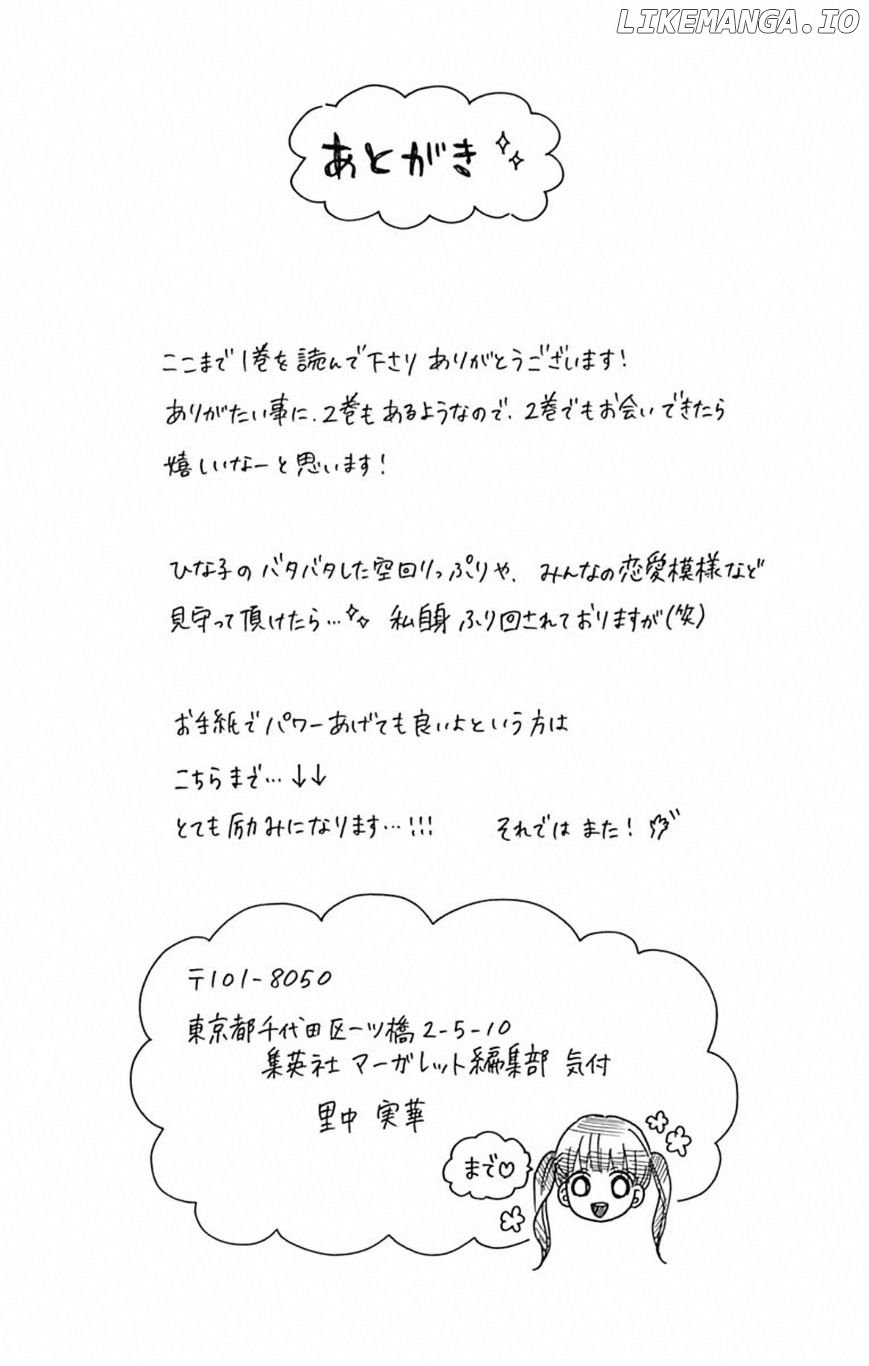 LIKEMANGA.IO
あとがき
ここまで1巻を読んで下さり ありがとうございます!
ありがたい事に、2巻もあるようなので、2巻でもお会いできたら
嬉しいなーと思います!
ひな子の バタバタした空回りっぷりや、みんなの恋愛模様など
見守って頂けたら… 私自身 ふり回されておりますが(笑)
お手紙でパワーあげても良いよという方は
こちらまで…↓↓
とても励みになります…!!! それでは また!
〒101-8050
東京都千代田区一ツ橋2-5-10
集英社 マーガレット編集部 気付
里中 実華
まで♡